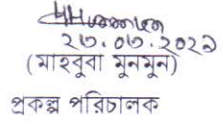 ২৩.০৩.২০২১
(মাহবুবা মুনমুন)
প্রকল্প পরিচালক